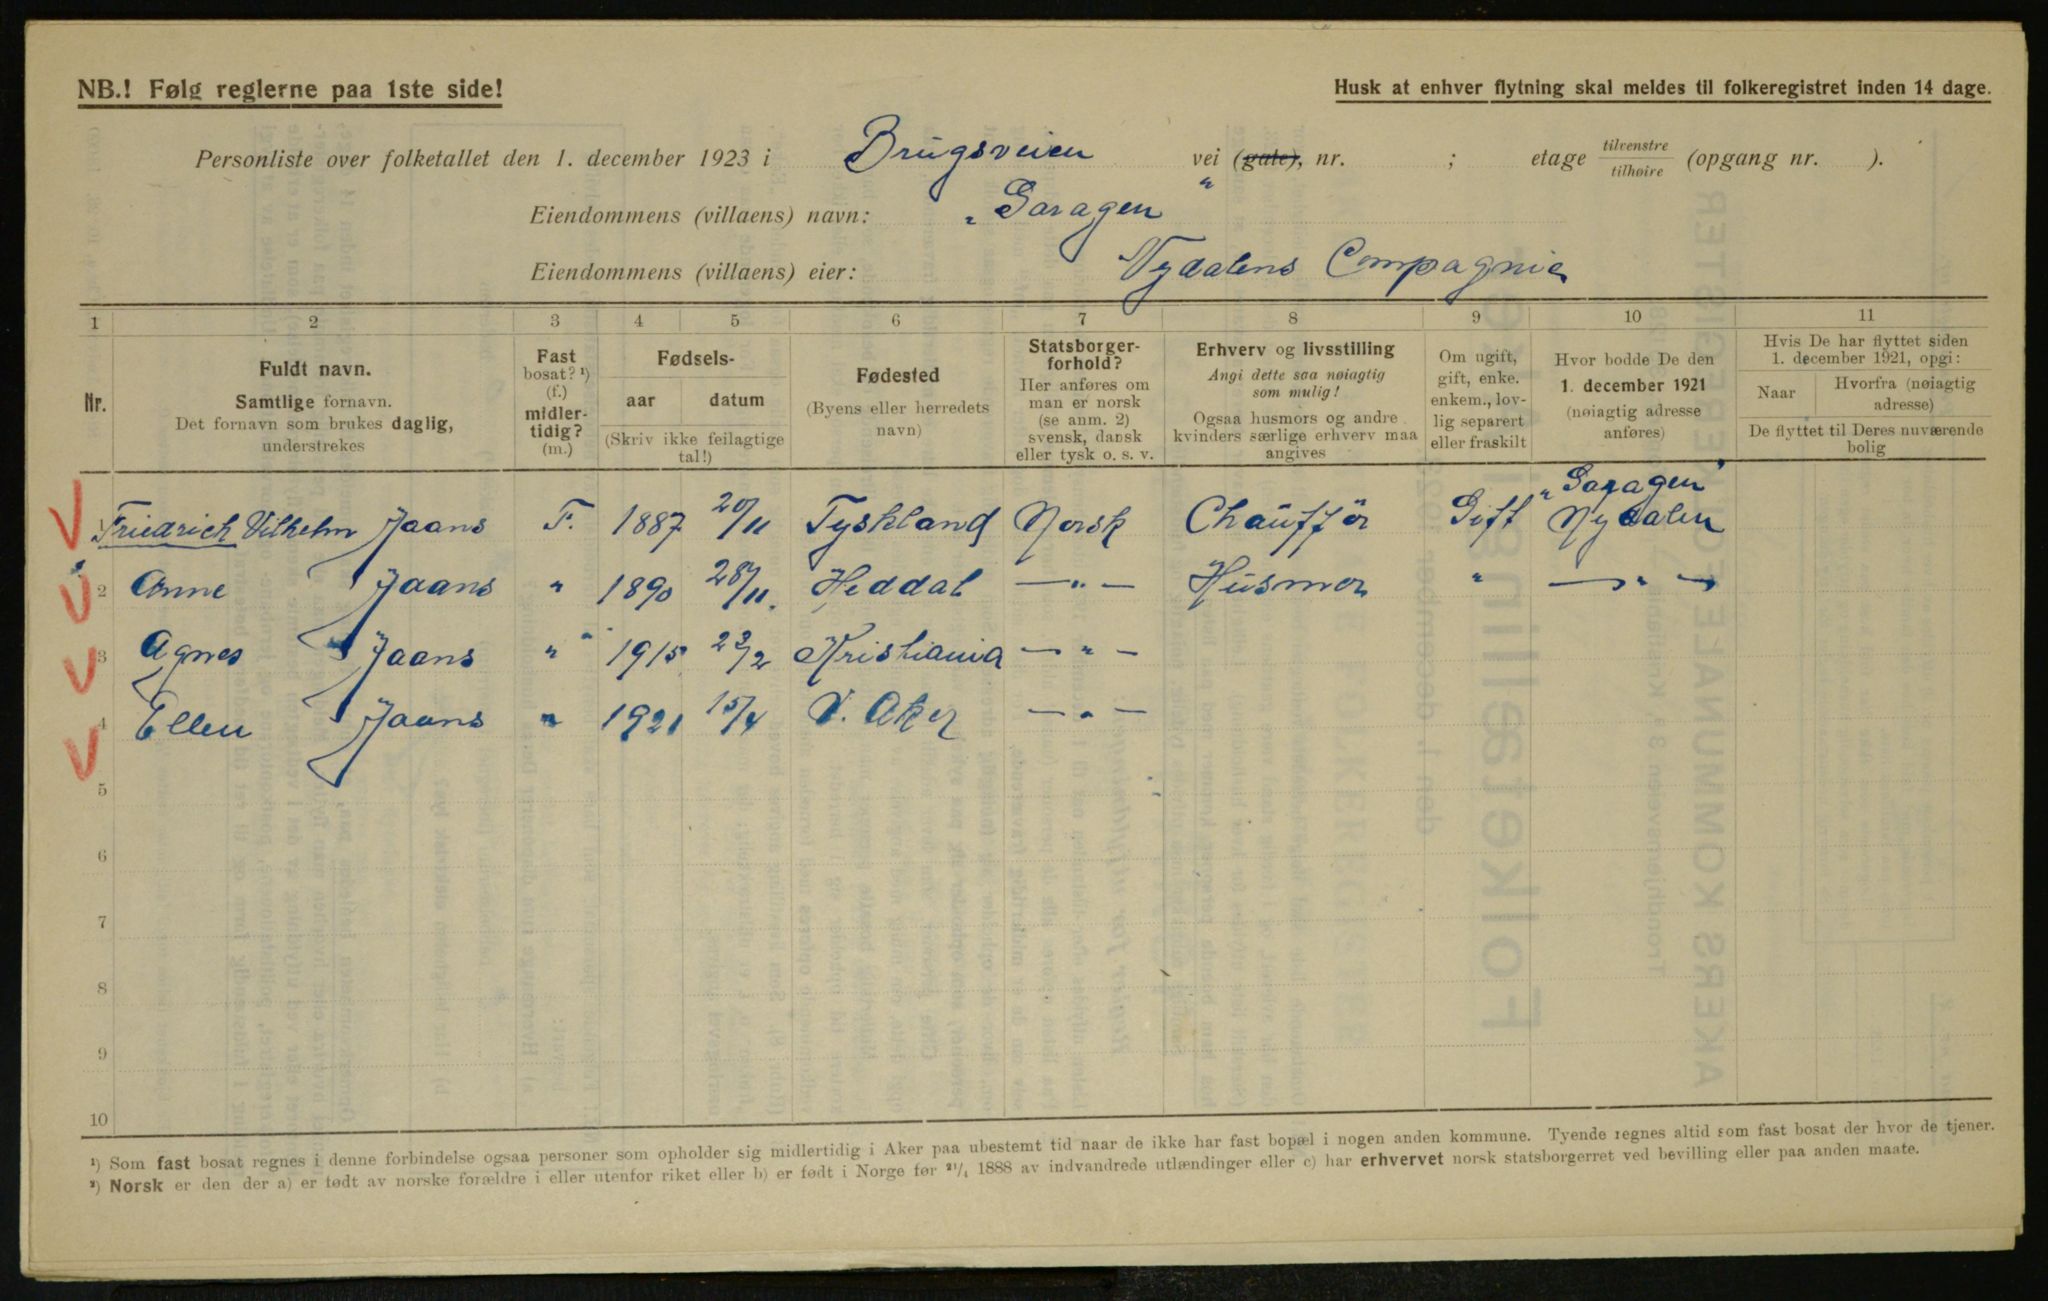 NB.! Følg reglerne paa 1ste side!
Husk at enhver flytning skal meldes til folkeregistret inden 14 dage.
Personliste over folketallet den 1. december 1923 i Brugsveien vei (gate), nr. ; etage tilvenstre/tilhøire (opgang nr. ).
Eiendommens (villaens) navn: „Garagen"
Eiendommens (villaens) eier: Nydalens Compagnie
1 2 3 4 5 6 7 8 9 10 11
Nr.
Fuldt navn.
Samtlige fornavn.
Det fornavn som brukes daglig,
understrekes
Fast
bosat? ¹)
(f.)
midler-
tidig?
(m.)
Fødsels-
aar datum
(Skriv ikke feilagtige
tal!)
Fødested
(Byens eller herredets
navn)
Statsborger-
forhold?
Her anføres om
man er norsk
(se anm. 2)
svensk, dansk
eller tysk o. s. v.
Erhverv og livsstilling
Angi dette saa nøiagtig
som mulig!
Ogsaa husmors og andre
kvinders særlige erhverv maa
angives
Om ugift,
gift, enke.
enkem., lov-
lig separert
eller fraskilt
Hvor bodde De den
1. december 1921
(nøiagtig adresse
anføres)
Hvis De har flyttet siden
1. december 1921, opgi:
Naar
Hvorfra (nøiagtig
adresse)
De flyttet til Deres nuværende
bolig
1 Friedrich Vilhelm Jaans F. 1887 20/11 Tyskland Norsk Chauffør Gift „Garagen" Nydalen
2 Anne Jaans " 1890 28/11. Heddal — " — Husmor " — " —
3 Agnes Jaans " 1915 23/2 Kristiania — " —
4 Ellen Jaans " 1921 15/4 V. Aker — " —
5
6
7
8
9
10
¹) Som fast bosat regnes i denne forbindelse ogsaa personer som opholder sig midlertidig i Aker paa ubestemt tid naar de ikke har fast bopæl i nogen anden kommune. Tyende regnes altid som fast bosat der hvor de tjener.
²) Norsk er den der a) er født av norske forældre i eller utenfor riket eller b) er født i Norge før ²¹/₄ 1888 av indvandrede utlændinger eller c) har erhvervet norsk statsborgerret ved bevilling eller paa anden maate.